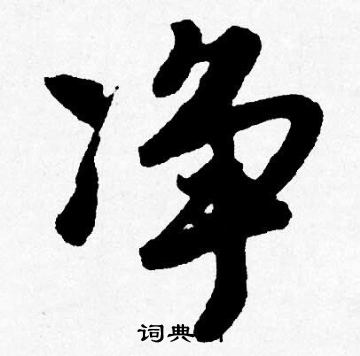 净
词典